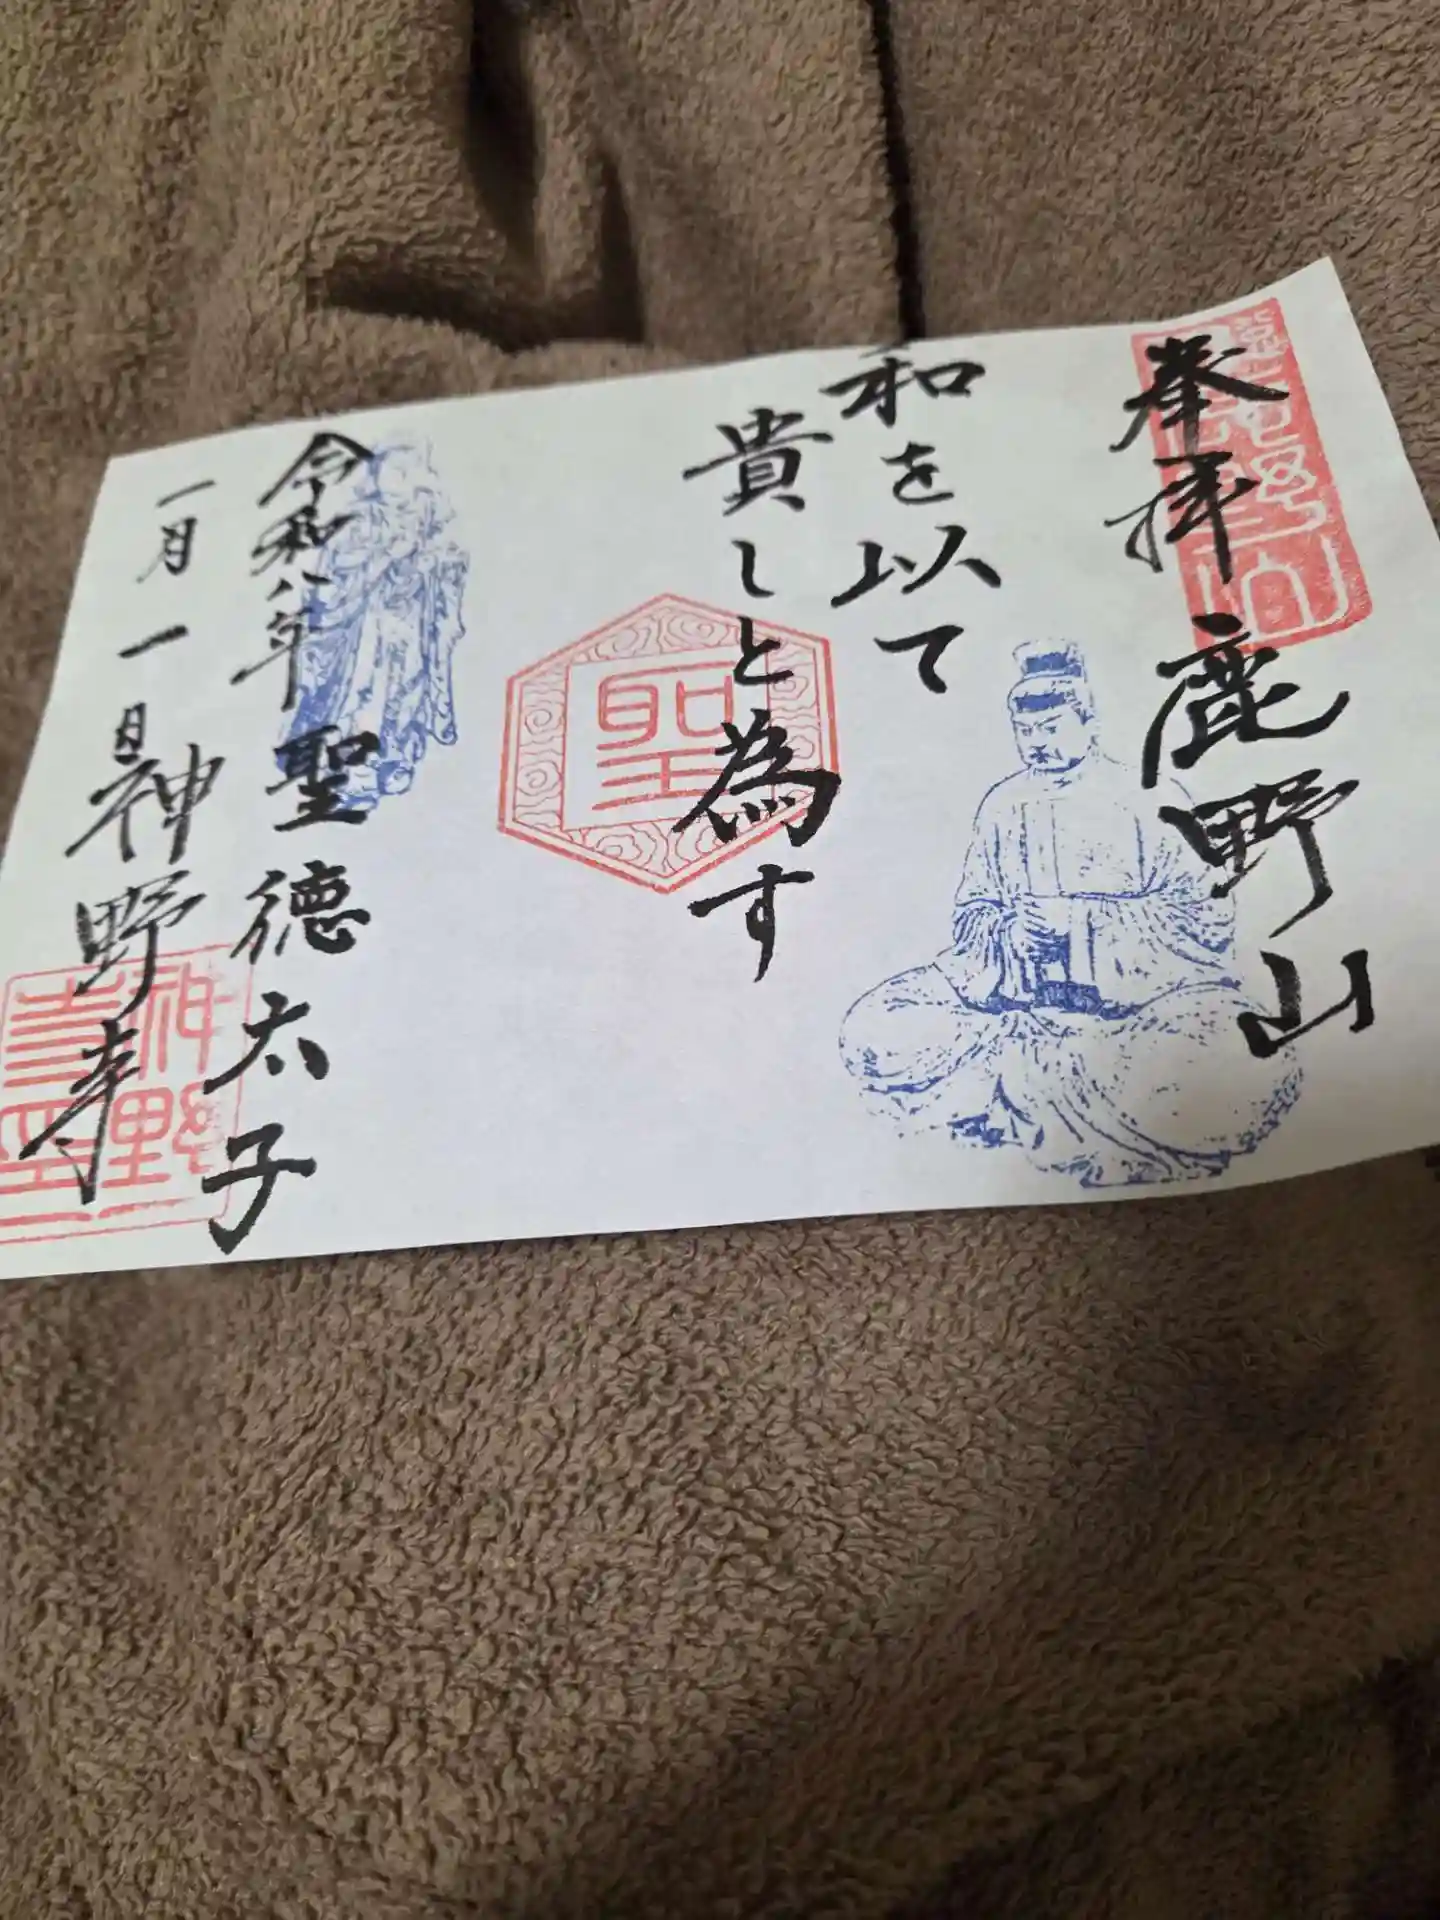 奉拝 鹿野山
和を以て
貴しと為す
聖
令和八年 聖徳太子
一月一日 神野寺
神野
寺印